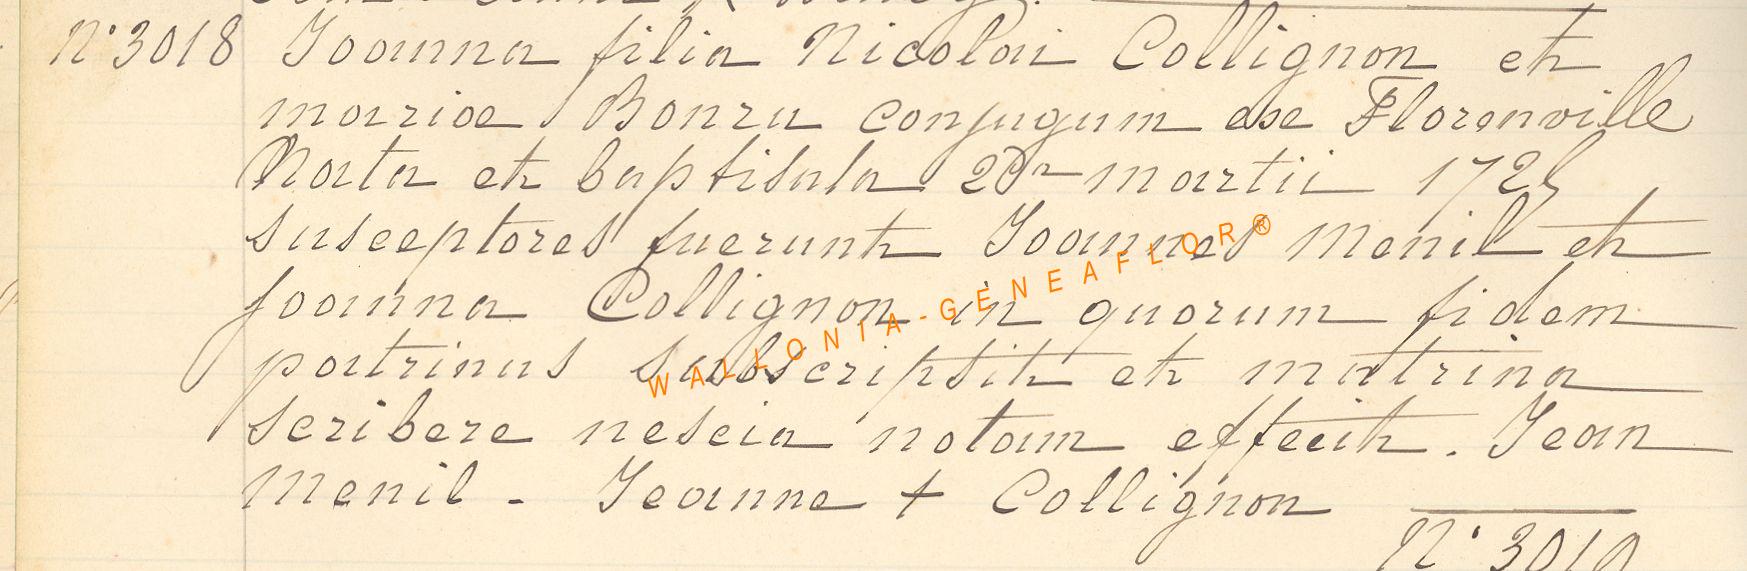 N° 3018 Joanna filia Nicolai Collignon et
mariae Bonru conjugum ex Florenville
Nata et baptisata martii
susceptores fuerunt Joannes Menil et
Joanna Collignon in quorum fidem
patrinus subscripsit et matrina
scribere nescia notam effecit. Jean
Menil - Jeanne + Collignon
N° 3019
WALLONIA-GENEAFLOR®